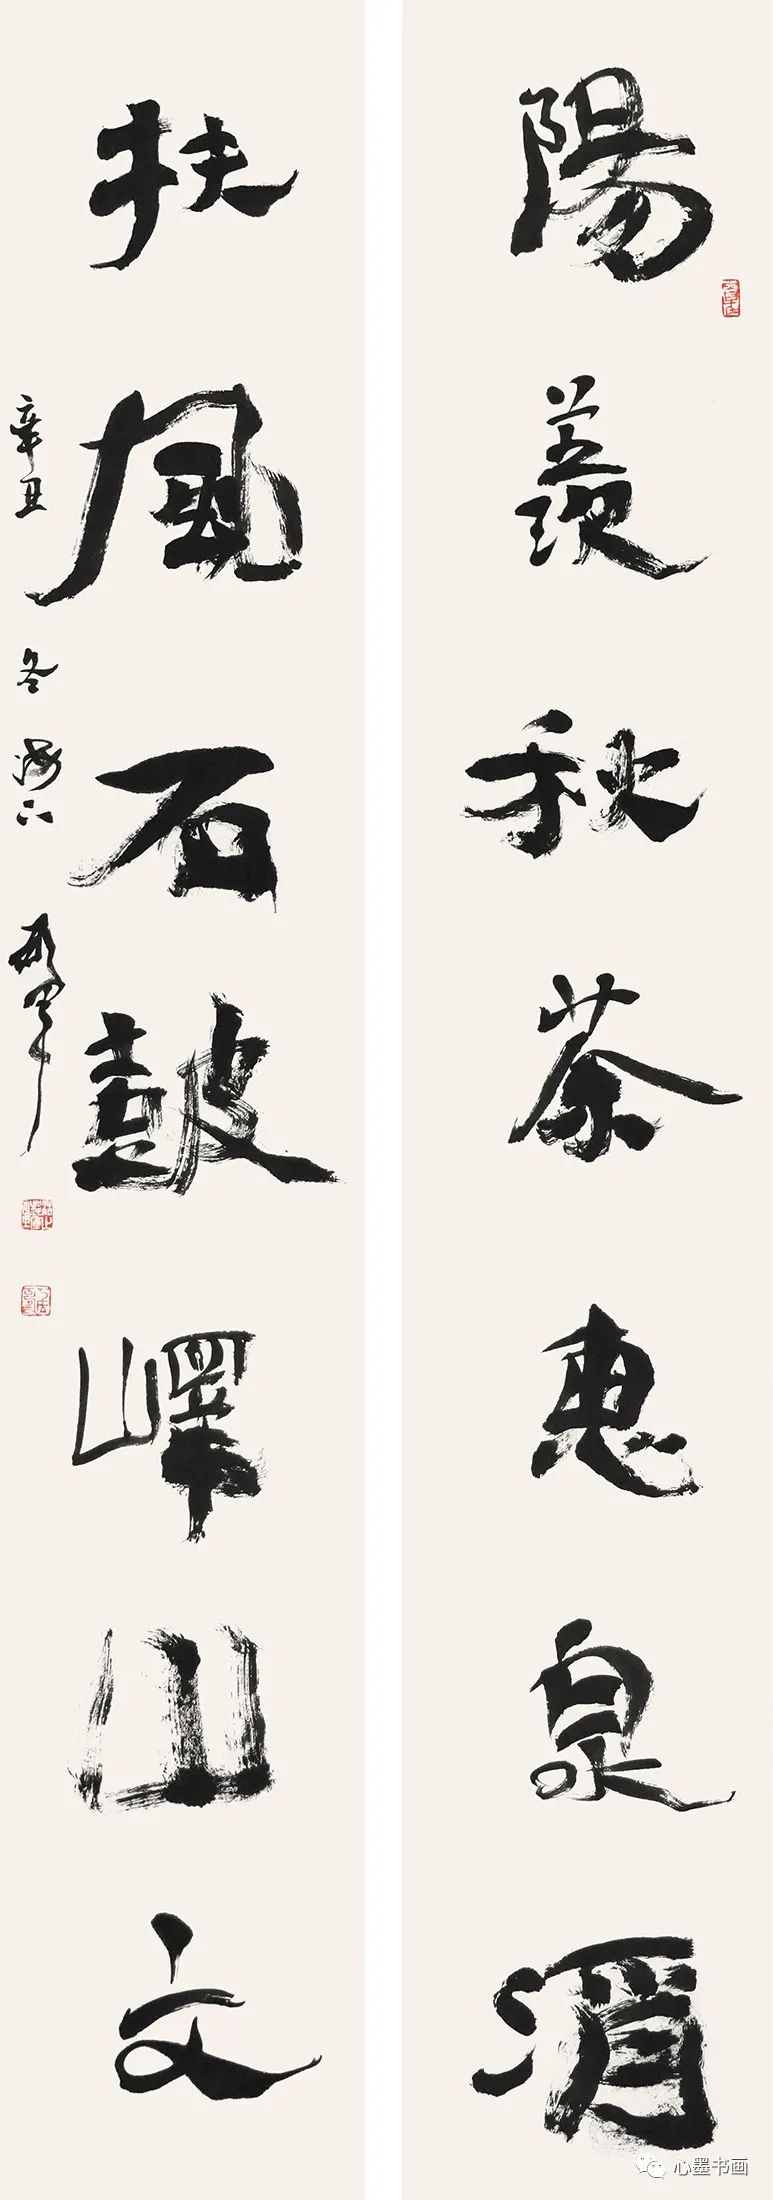 陽羨秋茶惠泉酒
扶風石鼓嶧山文
辛丑冬
心墨书画